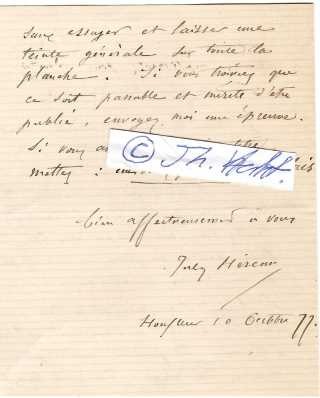 sans essayer et laisser une
teinte générale sur toute la
planche. Si vous trouvez que
ce soit passable et mérite d'être
publié, envoyez moi une épreuve.
Si vous
mettez :
bien affectueusement à vous
Jules Héreau
Honfleur 10 Octobre 77.
©